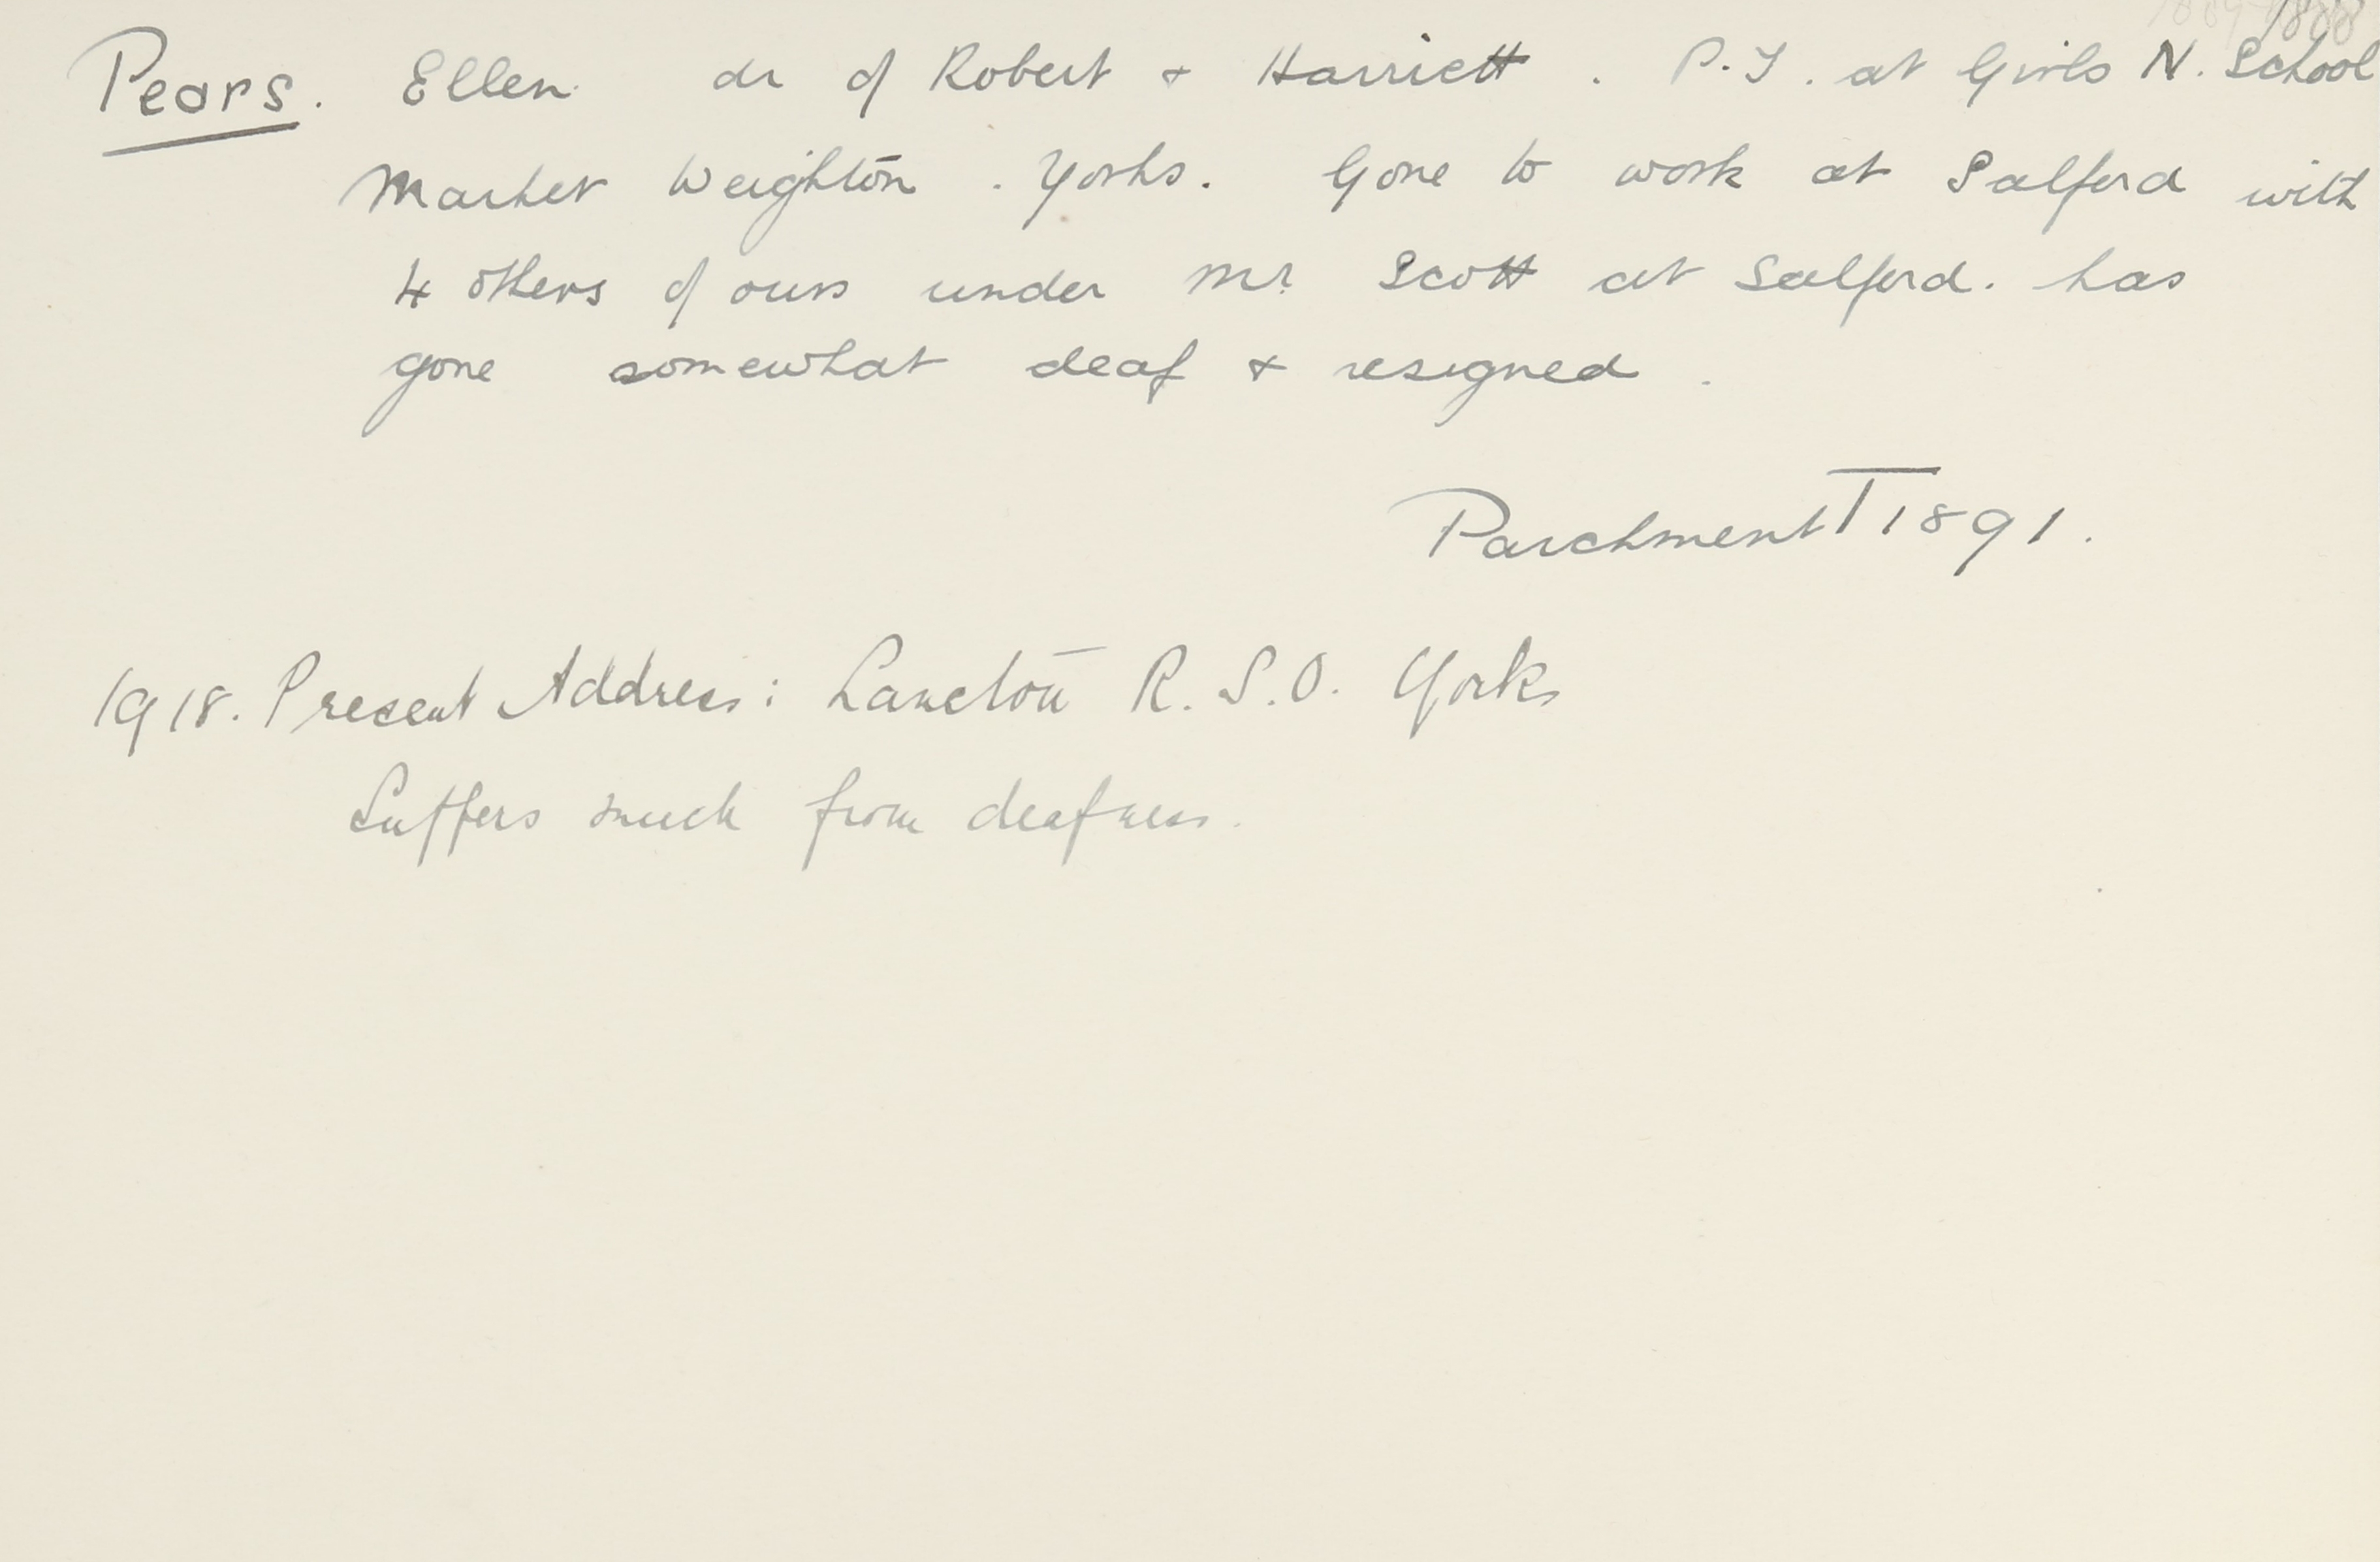 1888
Pears. Ellen. dr of Robert + Harriett. P.T. at Girls N. School
Market Weighton. Yorks. Gone to work at Salford with
4 others of ours under Mr. Scott at Salford. has
gone somewhat deaf + resigned.
Parchment 1891.
1918. Present Address: R.S.O. Yorks
Suffers much from deafness.